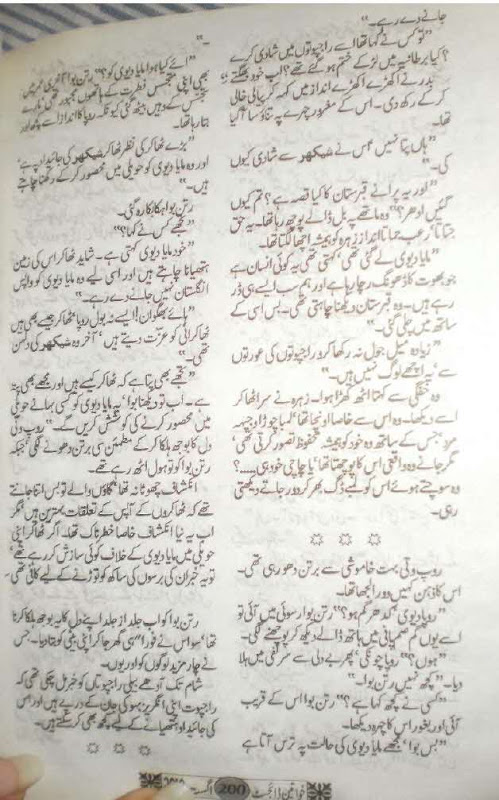 جانے دے رہے۔"
"تو کس نے کہا تھا اسے راجپوتوں میں شادی کرے
؟ کیا برطانیہ میں لڑکے ختم ہو گئے تھے؟ اب خود بھگتے"
بدر نے اکھڑے اکھڑے انداز میں کہہ کر پیالی خالی
کر کے رکھ دی۔ اس کے مغرور چہرے پہ تناؤ سا آ گیا
تھا۔
"ہاں پتا نہیں اس نے شیکھر سے شادی کیوں
کی۔"
"اور یہ پرانے قبرستان کا کیا قصہ ہے؟ تم کیوں
گئیں ادھر؟" وہ ماتھے پہ بل ڈالے پوچھ رہا تھا۔ یہ حق
جتاتا، رعب جماتا انداز زہرہ کو ہمیشہ اچھا لگتا تھا۔
"مایا دیوی لے گئی تھی، کہتی تھی یہ کوئی انسان ہے
جو بھوت کا ڈھونگ رچا رہا ہے اور ہم سب ایسے ہی ڈر
رہے ہیں۔ وہ قبرستان دیکھنا چاہتی تھی۔ بس اسی کے
ساتھ میں چلی گئی۔"
"زیادہ میل جول نہ رکھا کرو راجپوتوں کی عورتوں
سے، یہ اچھے لوگ نہیں ہیں۔"
وہ خفگی سے کہتا اٹھ کھڑا ہوا۔ زہرہ نے سر اٹھا کر
اسے دیکھا۔ وہ اس سے خاصا اونچا تھا، لمبا چوڑا وجیہہ
مرد، جس کے ساتھ وہ خود کو ہمیشہ محفوظ تصور کرتی تھی،
مگر جانے وہ واقعی اس کا پوچھتا تھا، یا چاچی خود ہی۔۔۔۔؟
وہ سوچتے ہوئے اس کو لمبے ڈگ بھر کر دور جاتے دیکھتی
رہی۔
☼ ☼ ☼
روپ وتی بہت خاموشی سے برتن دھو رہی تھی۔
اس کا ذہن کہیں دور الجھا تھا۔
"روپا دیوی، کدھر گم ہو؟" رتن بوا رسوئی میں آئی تو
اسے یوں گم صم پانی میں ہاتھ ڈالے دیکھ کر پوچھنے لگی۔
"ہوں؟" روپا چونکی، پھر بے دلی سے سر نفی میں ہلا
دیا۔ "کچھ نہیں رتن بوا۔"
"کسی نے کچھ کہا ہے؟" رتن بوا اس کے قریب
آئی اور بغور اس کا چہرہ دیکھا۔
"بس بوا، مجھے مایا دیوی کی حالت پہ ترس آتا ہے
۔"
"اے کیا ہوا مایا دیوی کو؟" رتن بوا آخری عمر میں
بھی اپنی متجسس فطرت کے ہاتھوں مجبور تھی، مارے
تجسس کے وہیں بیٹھ گئی کیونکہ روپا کا انداز اسے کچھ اور
بتا رہا تھا۔
"بڑے ٹھاکر کی نظر ٹھاکر شیکھر کی جائیداد پہ ہے،
اور وہ مایا دیوی کو حویلی میں محصور کر کے رکھنا چاہتے
ہیں۔"
رتن بوا ہکا بکا رہ گئی۔
"تجھے کس نے کہا؟"
"خود مایا دیوی کہتی ہے۔ شاید ٹھاکر اس کی زمین
ہتھیانا چاہتے ہیں اور اسی لیے وہ مایا دیوی کو واپس
انگلستان نہیں جانے دے رہے۔"
"ہائے بھگوان! ایسے نہ بول روپا، ٹھاکر جیسے بھی ہیں
ٹھاکرائی کو عزت دیتے ہیں، آخر وہ شیکھر کی دلہن
تھی۔"
"تجھے بھی پتا ہے کہ ٹھاکر کیسے ہیں اور مجھے بھی پتہ
ہے۔ اب تو دیکھنا بوا، یہ مایا دیوی کو کسی بہانے حویلی
میں محصور کرنے کی کوشش کریں گے۔" روپ وتی
دل کا بوجھ ہلکا کر کے مطمئن سی برتن دھونے لگی، جبکہ
رتن بوا کو تو ہول اٹھ رہے تھے۔
انکشاف چھوٹا نہ تھا، گاؤں والے تو بس اتنا جانتے
تھے کہ ٹھاکروں کے آپس کے تعلقات بہترین ہیں، مگر
اب یہ نیا انکشاف خاصا خطرناک تھا۔ اگر ٹھاکر اپنی
حویلی میں مایا دیوی کے خلاف کوئی سازش کر رہے تھے،
تو یہ خبر ان کی برسوں کی ساکھ کو توڑنے کے لیے کافی تھی۔
رتن بوا کو اب جلد از جلد اپنے دل کا یہ بوجھ ہلکا کرنا
تھا، سو اس نے فورا" ہی گھر جا کر اپنی بیٹی کو بتا دیا۔ جس
نے چار مزید لوگوں کو اور یوں۔
شام تک آدھے بیلی راجپوتاں کو خبر مل چکی تھی کہ
راجپوت اپنی انگریز بہو کی جان کے درپے ہیں اور اس
کی جائیداد ہتھیانے کے لیے کچھ بھی کر سکتے ہیں۔
☼ ☼ ☼
خواتین ڈائجسٹ 200 اگست